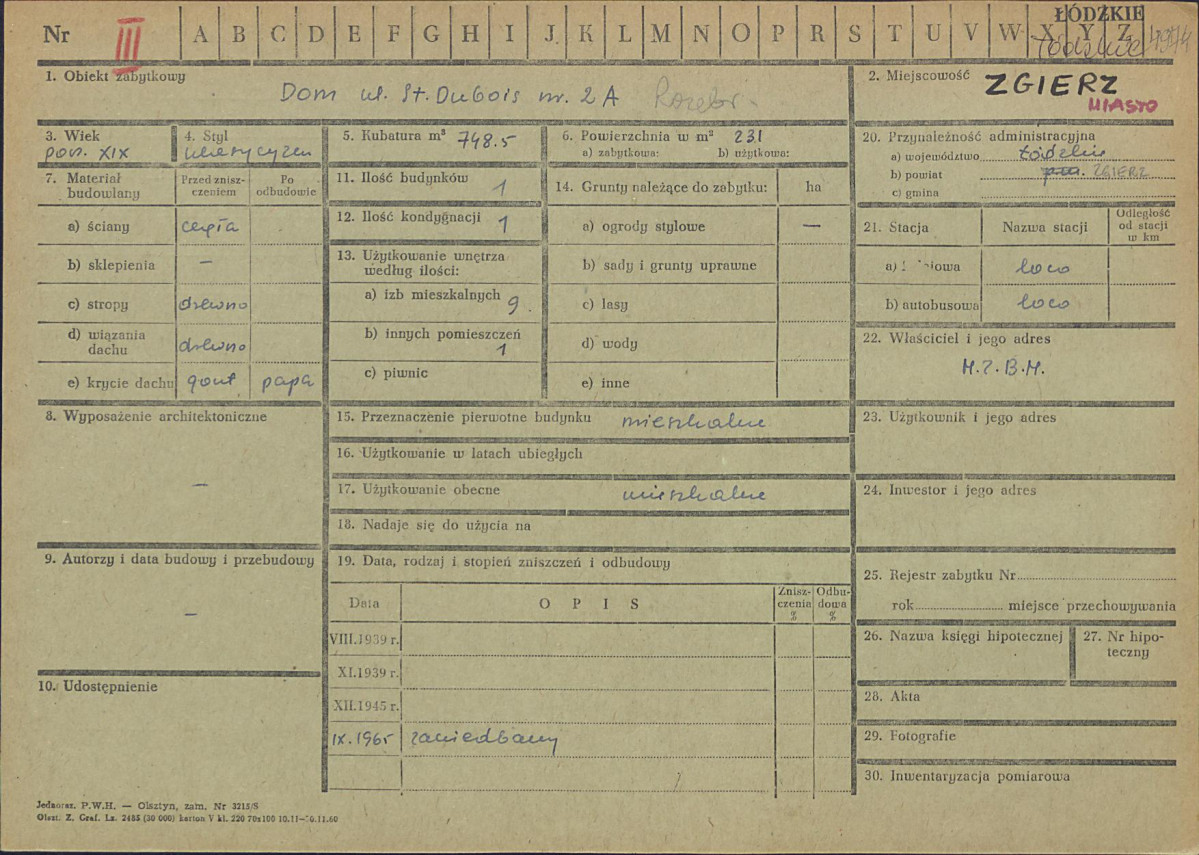 Nr III A B C D E F G H I J K L M N O P R S T U V W X Y Z
ŁÓDZKIE
Łódzkie 4944
1. Obiekt zabytkowy
Dom ul. St. Dubois nr. 2A Rozebr.
2. Miejscowość ZGIERZ
MIASTO
3. Wiek
poł. XIX
4. Styl
5. Kubatura m³ 748.5
6. Powierzchnia w m² 231
a) zabytkowa: b) użytkowa:
7. Materiał budowlany
Przed zniszczeniem
Po odbudowie
a) ściany cegła
b) sklepienia —
c) stropy drewno
d) wiązania dachu drewno
e) krycie dachu gont papa
8. Wyposażenie architektoniczne
—
9. Autorzy i data budowy i przebudowy
—
10. Udostępnienie
11. Ilość budynków 1
12. Ilość kondygnacji 1
13. Użytkowanie wnętrza
według ilości:
a) izb mieszkalnych 9
b) innych pomieszczeń
1
c) piwnic
14. Grunty należące do zabytku: ha
a) ogrody stylowe —
b) sady i grunty uprawne
c) lasy
d) wody
e) inne
15. Przeznaczenie pierwotne budynku mieszkalne
16. Użytkowanie w latach ubiegłych
17. Użytkowanie obecne mieszkalne
18. Nadaje się do użycia na
19. Data, rodzaj i stopień zniszczeń i odbudowy
Data O P I S Zniszczenia % Odbudowa %
VIII.1939 r.
XI.1939 r.
XII.1945 r.
IX.1965 zaniedbany
20. Przynależność administracyjna
a) województwo łódzkie
b) powiat ZGIERZ
c) gmina
21. Stacja Nazwa stacji Odległość od stacji w km
a) loco
b) autobusowa loco
22. Właściciel i jego adres
M.Z.B.M.
23. Użytkownik i jego adres
24. Inwestor i jego adres
25. Rejestr zabytku Nr
rok miejsce przechowywania
26. Nazwa księgi hipotecznej
27. Nr hipoteczny
28. Akta
29. Fotografie
30. Inwentaryzacja pomiarowa
Jednoraz. P.W.H. — Olsztyn, zam. Nr 3215/S
Olszt. Z. Graf. Lz. 2485 (30 000) karton V kl. 220 70x100 10.11—